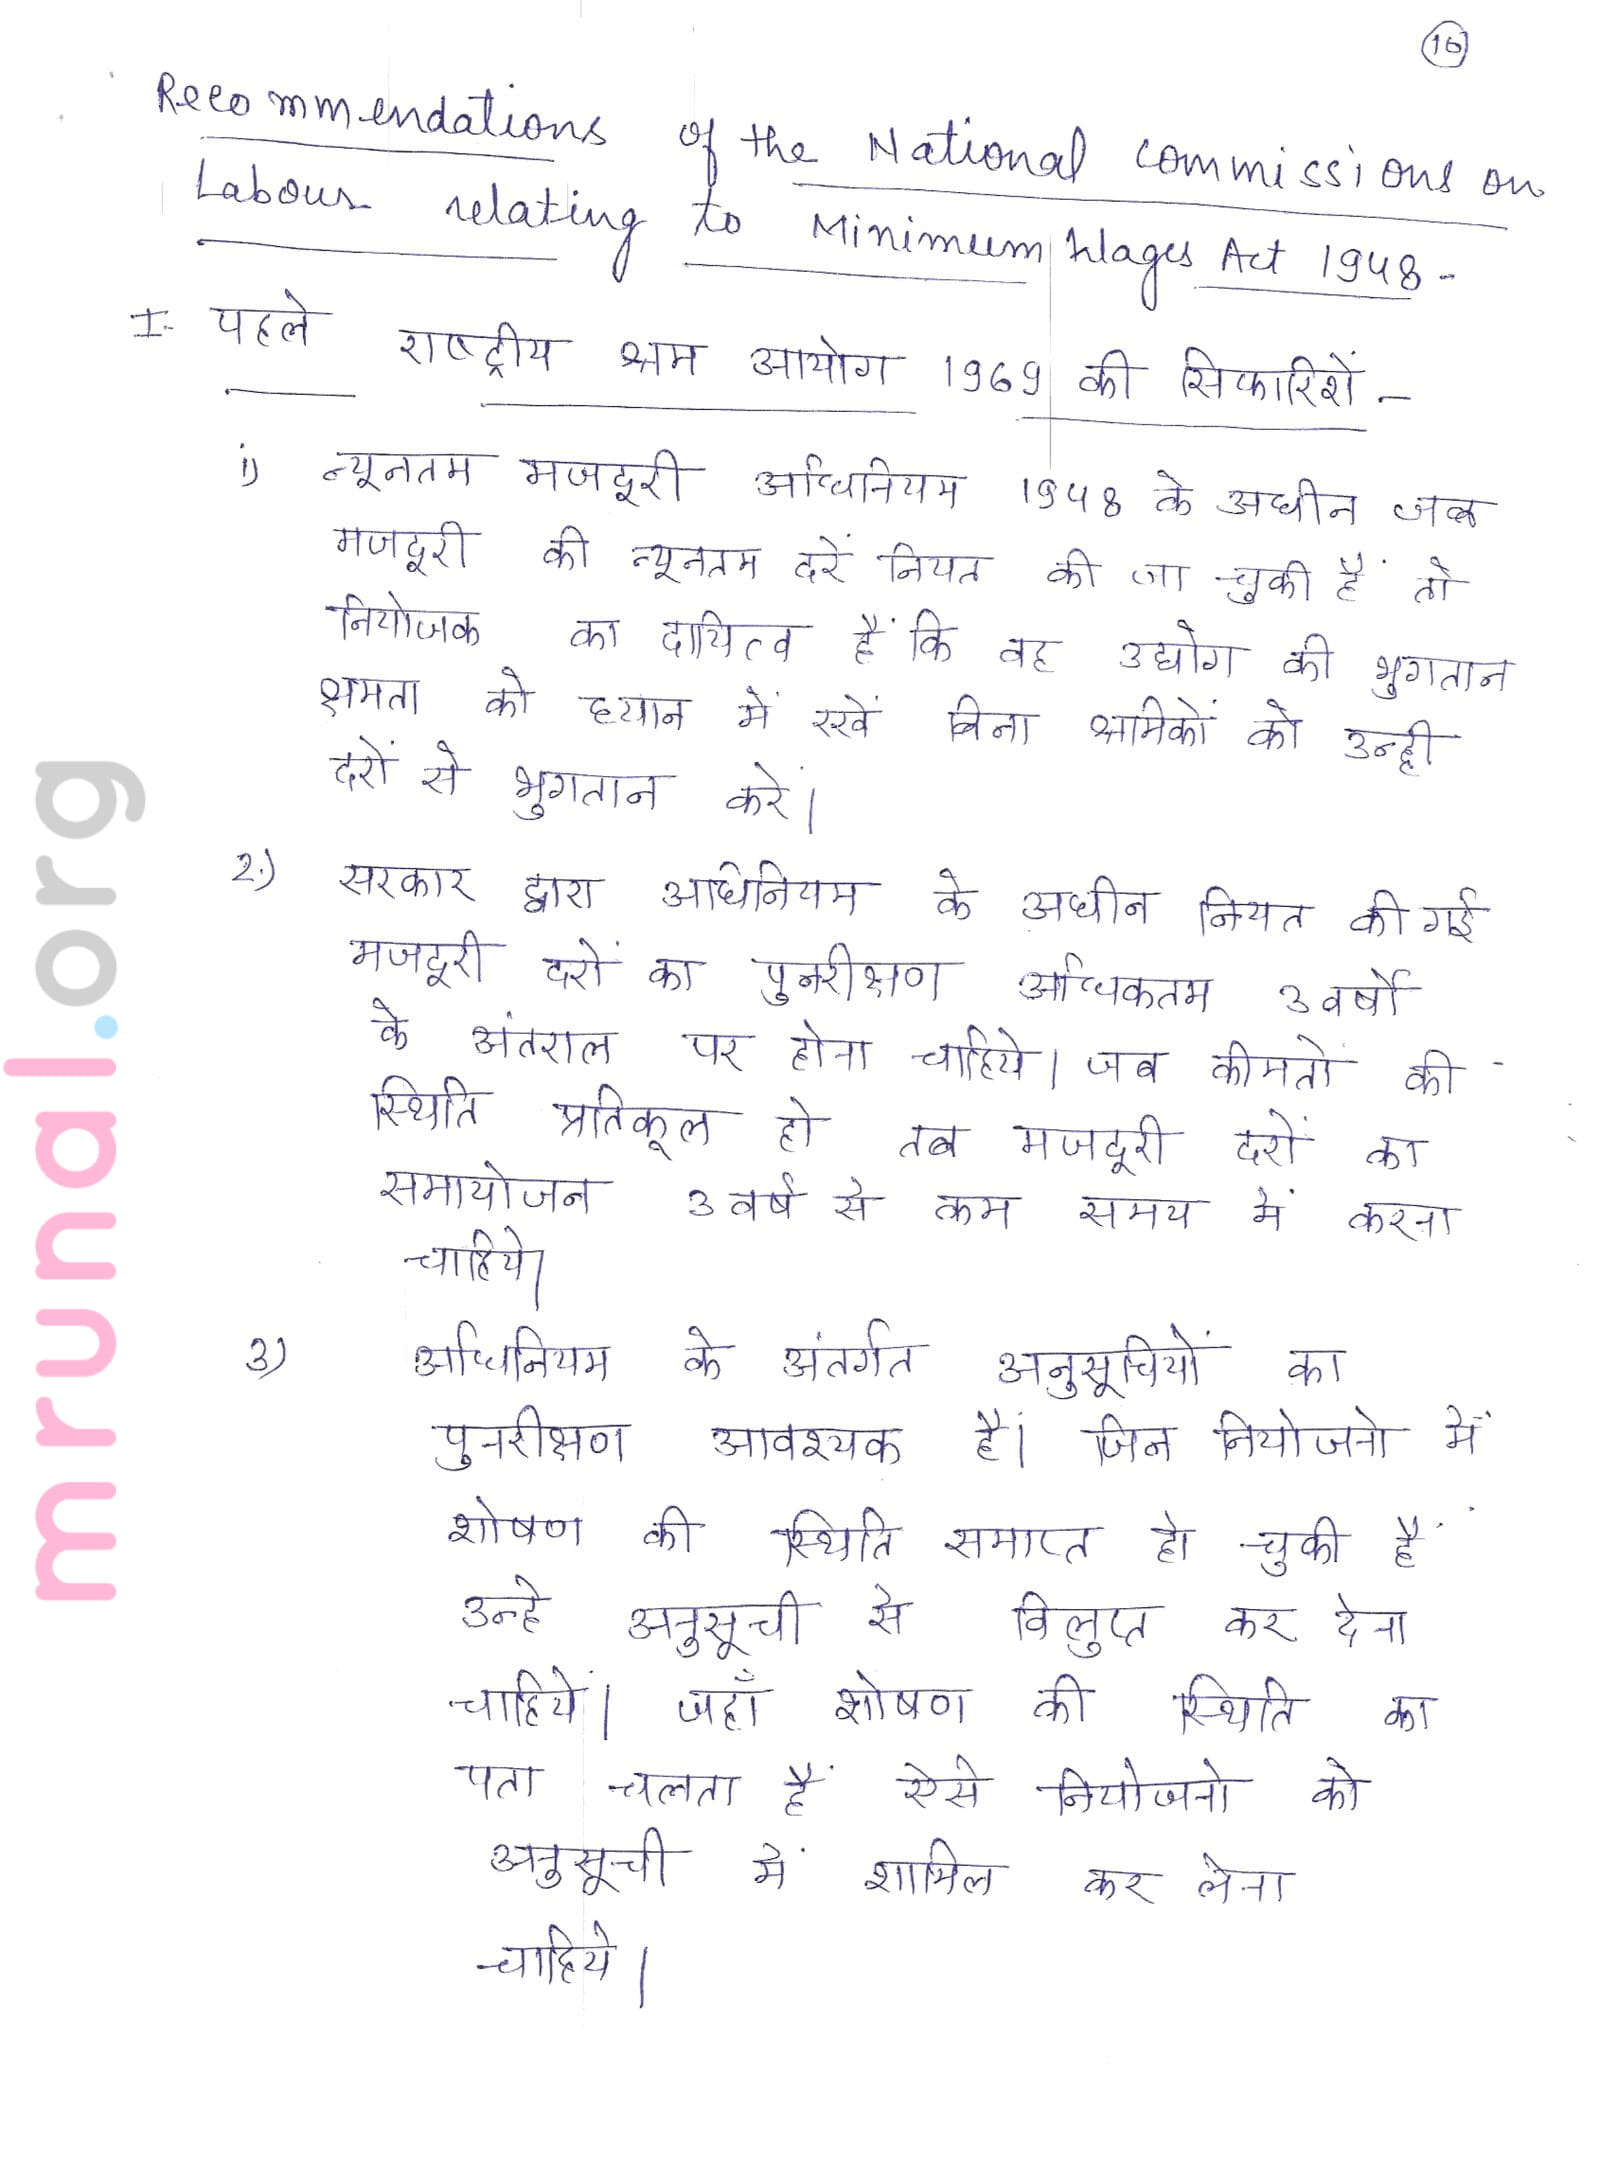 16
Recommendations of the National commissions on
Labour relating to Minimum Wages Act 1948 -
I- पहले राष्ट्रीय श्रम आयोग 1969 की सिफारिशें -
i) न्यूनतम मजदूरी अधिनियम 1948 के अधीन जब
मजदूरी की न्यूनतम दरें नियत की जा चुकी हैं तो
नियोजक का दायित्व हैं कि वह उद्योग की भुगतान
क्षमता को ध्यान में रखें बिना श्रमिकों को उन्ही
दरों से भुगतान करें।
2.) सरकार द्वारा अधिनियम के अधीन नियत की गई
मजदूरी दरों का पुनरीक्षण अधिकतम 3 वर्षों
के अंतराल पर होना चाहिये। जब कीमतों की
स्थिति प्रतिकूल हो तब मजदूरी दरों का
समायोजन 3 वर्ष से कम समय में करना
चाहिये।
3) अधिनियम के अंतर्गत अनुसूचियों का
पुनरीक्षण आवश्यक है। जिन नियोजनो में
शोषण की स्थिति समाप्त हो चुकी हैं
उन्हे अनुसूची से विलुप्त कर देना
चाहिये। जहाँ शोषण की स्थिति का
पता चलता हैं ऐसे नियोजनो को
अनुसूची में शामिल कर लेना
चाहिये।
mrunal.org